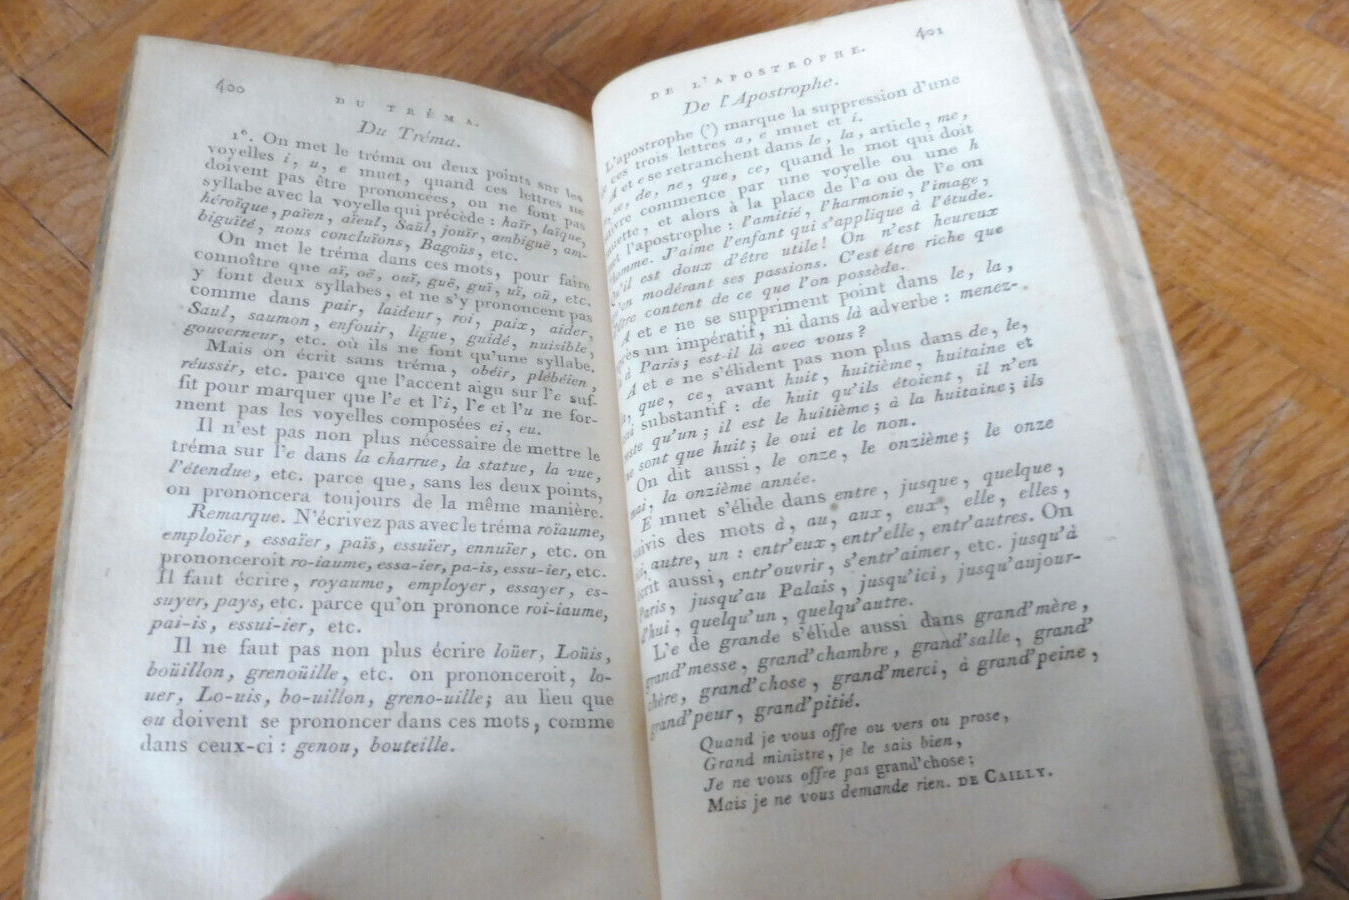 400
DU TRÉMA.
Du Tréma.
1°. On met le tréma ou deux points sur les
voyelles i, u, e muet, quand ces lettres ne
doivent pas être prononcées, ou ne font pas
syllabe avec la voyelle qui précède : haïr, laïque,
héroïque, païen, aïeul, Saül, jouïr, ambiguë, am-
biguïté, nous concluïons, Bagoüs, etc.
On met le tréma dans ces mots, pour faire
connoître que aï, oë, ouï, guë, guï, uï, oü, etc.
y font deux syllabes, et ne s'y prononcent pas
comme dans pair, laideur, roi, paix, aider,
Saul, saumon, enfouir, ligue, guidé, nuisible,
gouverneur, etc. où ils ne font qu'une syllabe.
Mais on écrit sans tréma, obéir, plébéien,
réussir, etc. parce que l'accent aigu sur l'e suf-
fit pour marquer que l'e et l'i, l'e et l'u ne for-
ment pas les voyelles composées ei, eu.
Il n'est pas non plus nécessaire de mettre le
tréma sur l'e dans la charrue, la statue, la vue,
l'étendue, etc. parce que, sans les deux points,
on prononcera toujours de la même manière.
Remarque. N'écrivez pas avec le tréma roïaume,
emploïer, essaïer, païs, essuïer, ennuïer, etc. on
prononceroit ro-iaume, essa-ier, pa-is, essu-ier, etc.
Il faut écrire, royaume, employer, essayer, es-
suyer, pays, etc. parce qu'on prononce roi-iaume,
pai-is, essui-ier, etc.
Il ne faut pas non plus écrire loüer, Loüis,
boüillon, grenoüille, etc. on prononceroit, lo-
uer, Lo-uis, bo-uillon, greno-uille; au lieu que
ou doivent se prononcer dans ces mots, comme
dans ceux-ci : genou, bouteille.
401
DE L'APOSTROPHE.
De l'Apostrophe.
L'apostrophe (') marque la suppression d'une
de ces trois lettres a, e muet et i.
A et e se retranchent dans le, la, article, me,
se, de, ne, que, ce, quand le mot qui doit
suivre commence par une voyelle ou une h
muette, et alors à la place de l'a ou de l'e on
met l'apostrophe : l'amitié, l'harmonie, l'image,
l'homme. J'aime l'enfant qui s'applique à l'étude.
Qu'il est doux d'être utile! On n'est heureux
qu'en modérant ses passions. C'est être riche que
d'être content de ce que l'on possède.
A et e ne se suppriment point dans le, la,
après un impératif, ni dans là adverbe : menez-
à Paris; est-il là avec vous?
A et e ne s'élident pas non plus dans de, le,
la, que, ce, avant huit, huitième, huitaine et
oui substantif : de huit qu'ils étoient, il n'en
reste qu'un; il est le huitième; à la huitaine; ils
ne sont que huit; le oui et le non.
On dit aussi, le onze, le onzième; le onze
mai, la onzième année.
E muet s'élide dans entre, jusque, quelque,
suivis des mots à, au, aux, eux, elle, elles,
autre, un : entr'eux, entr'elle, entr'autres. On
écrit aussi, entr'ouvrir, s'entr'aimer, etc. jusqu'à
Paris, jusqu'au Palais, jusqu'ici, jusqu'aujour-
d'hui, quelqu'un, quelqu'autre.
L'e de grande s'élide aussi dans grand'mère,
grand'messe, grand'chambre, grand'salle, grand'
chère, grand'chose, grand'merci, à grand'peine,
grand'peur, grand'pitié.
Quand je vous offre ou vers ou prose,
Grand ministre, je le sais bien,
Je ne vous offre pas grand'chose;
Mais je ne vous demande rien. DE CAILLY.